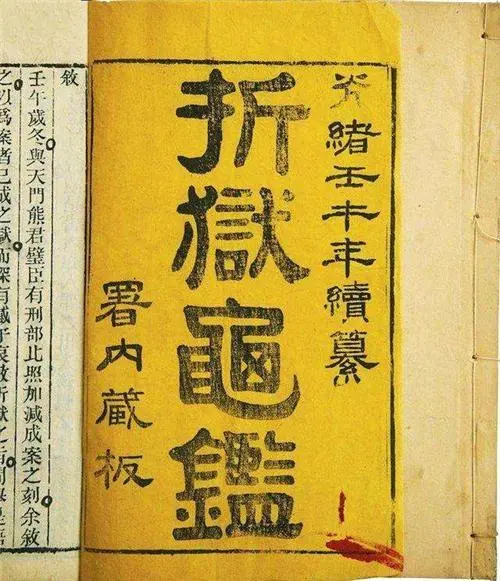 光緒壬午年續纂
折獄龜鑑
署內藏板
敘
壬午歲冬與天門熊君璧臣有刑部比照加減成案之刻余敘
之以爲案者已成之獄而深有于哀敬折獄之